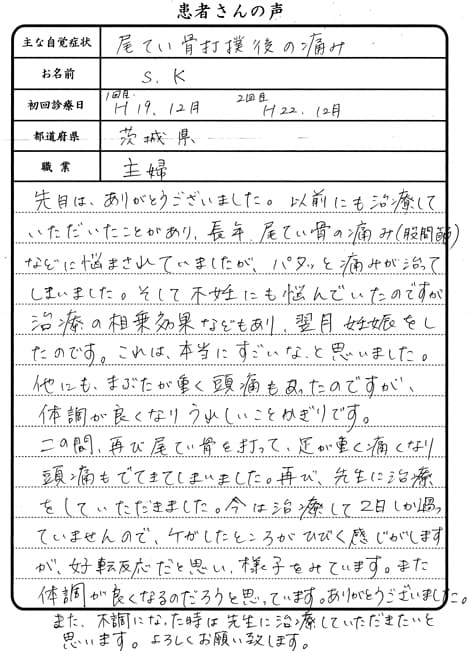 患者さんの声
主な自覚症状 尾てい骨打撲後の痛み
お名前 S.K
初回診療日 1回目 H19.12月 2回目 H22.12月
都道府県 茨城県
職業 主婦
先日は、ありがとうございました。以前にも治療して
いただいたことがあり、長年、尾てい骨の痛み(股関節)
などに悩まされていましたが、パタッと痛みが治って
しまいました。そして不妊にも悩んでいたのですが
治療の相乗効果などもあり、翌月妊娠をし
たのです。これは、本当にすごいな、と思いました。
他にも、まぶたが重く頭痛もあったのですが、
体調が良くなりうれしいことかぎりです。
この間、再び尾てい骨を打って、足が重く痛くなり
頭痛もでてきてしまいました。再び、先生に治療
をしていただきました。今は治療して2日しか過っ
ていませんので、ケガしたところがひびく感じがします
が、好転反応だと思い、様子をみています。また
体調が良くなるのだろうと思っています。ありがとうございました。
また、不調になった時は先生に治療していただきたいと
思います。よろしくお願い致します。